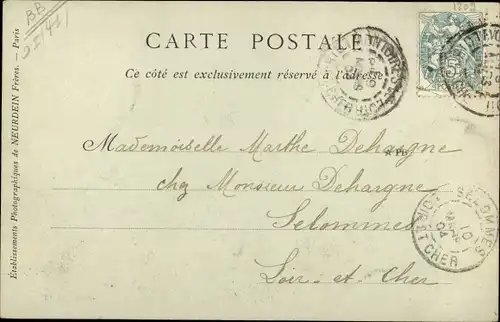 BB
CARTE POSTALE
Ce côté est exclusivement réservé à l'adresse
Mademoiselle Marthe Dehargne
chez Monsieur Dehargne
Selommes
Loir-et-Cher
SELOMMES
10
04
CHER
Établissements Photographiques de NEURDEIN Frères. — Paris